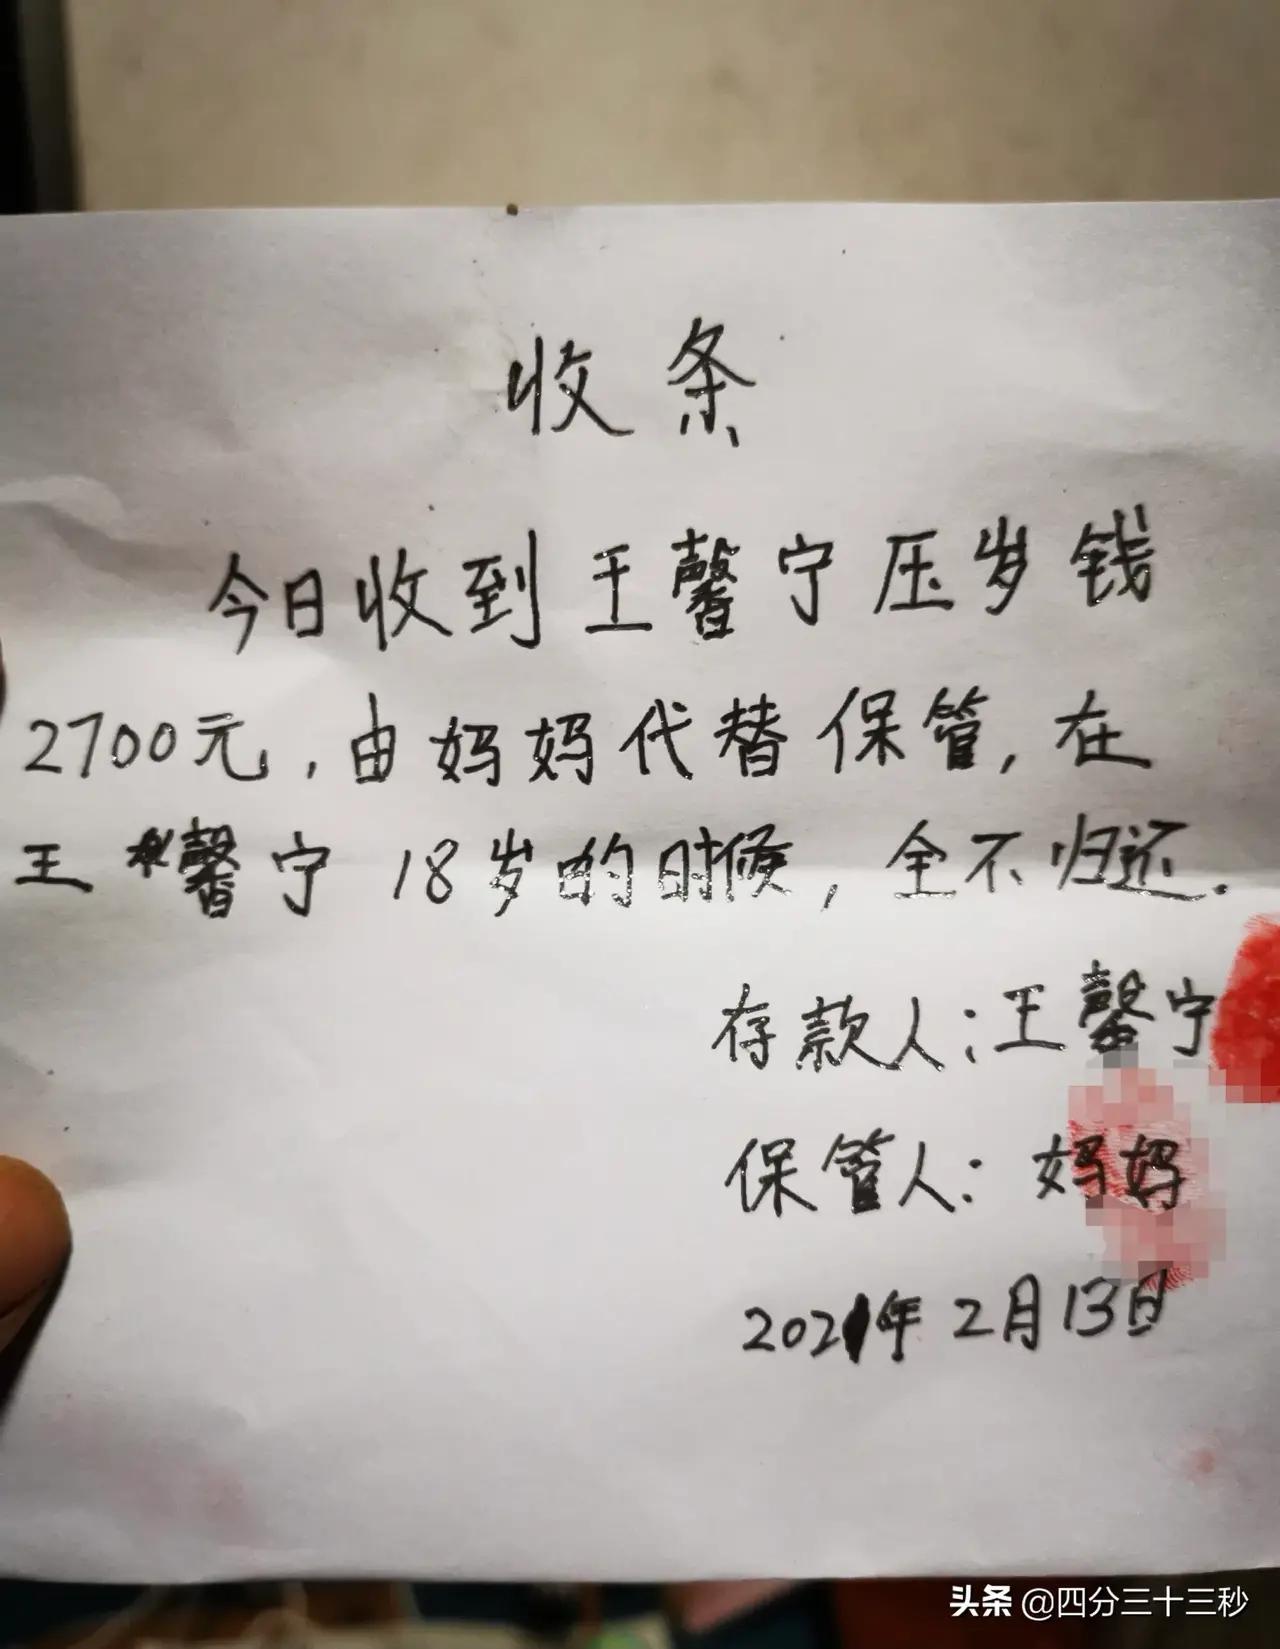 收条
今日收到王馨宁压岁钱
2700元,由妈妈代替保管,在
王馨宁18岁的时候,全不归还.
存款人:王馨宁
保管人:妈妈
2021年2月13日
头条 @四分三十三秒